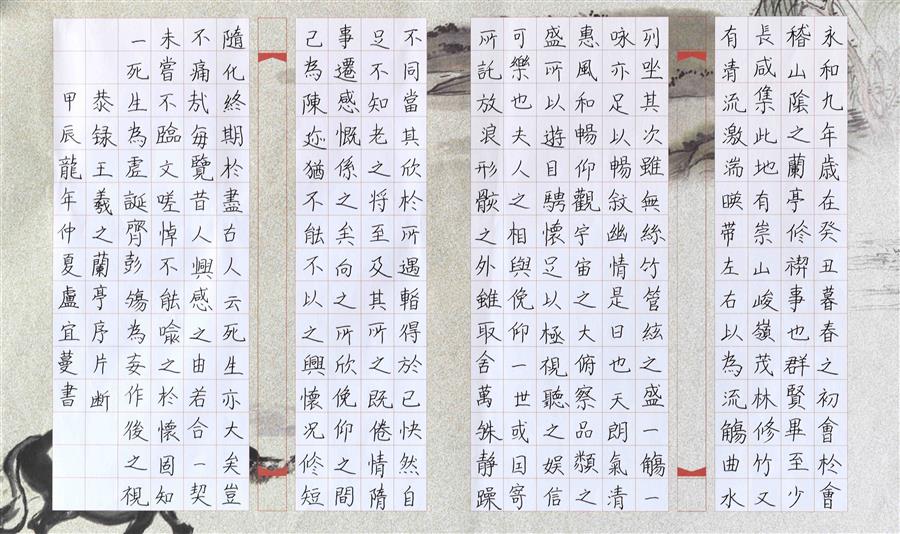 永和九年歲在癸丑暮春之初會於會
稽山陰之蘭亭修禊事也群賢畢至少
長咸集此地有崇山峻嶺茂林修竹又
有清流激湍暎帶左右以為流觴曲水
列坐其次雖無絲竹管絃之盛一觴一
咏亦足以暢敘幽情是日也天朗氣清
惠風和暢仰觀宇宙之大俯察品類之
盛所以遊目騁懷足以極視聽之娛信
可樂也夫人之相與俛仰一世或因寄
所託放浪形骸之外雖取舍萬殊靜躁
不同當其欣於所遇暫得於己快然自
足不知老之將至及其所之既倦情隨
事遷感慨係之矣向之所欣俛仰之間
已為陳迹猶不能不以之興懷況修短
隨化終期於盡古人云死生亦大矣豈
不痛哉每覽昔人興感之由若合一契
未嘗不臨文嗟悼不能喻之於懷固知
一死生為虛誕齊彭殤為妄作後之視
恭録王羲之蘭亭序片斷
甲辰龍年仲夏盧宜蔓書